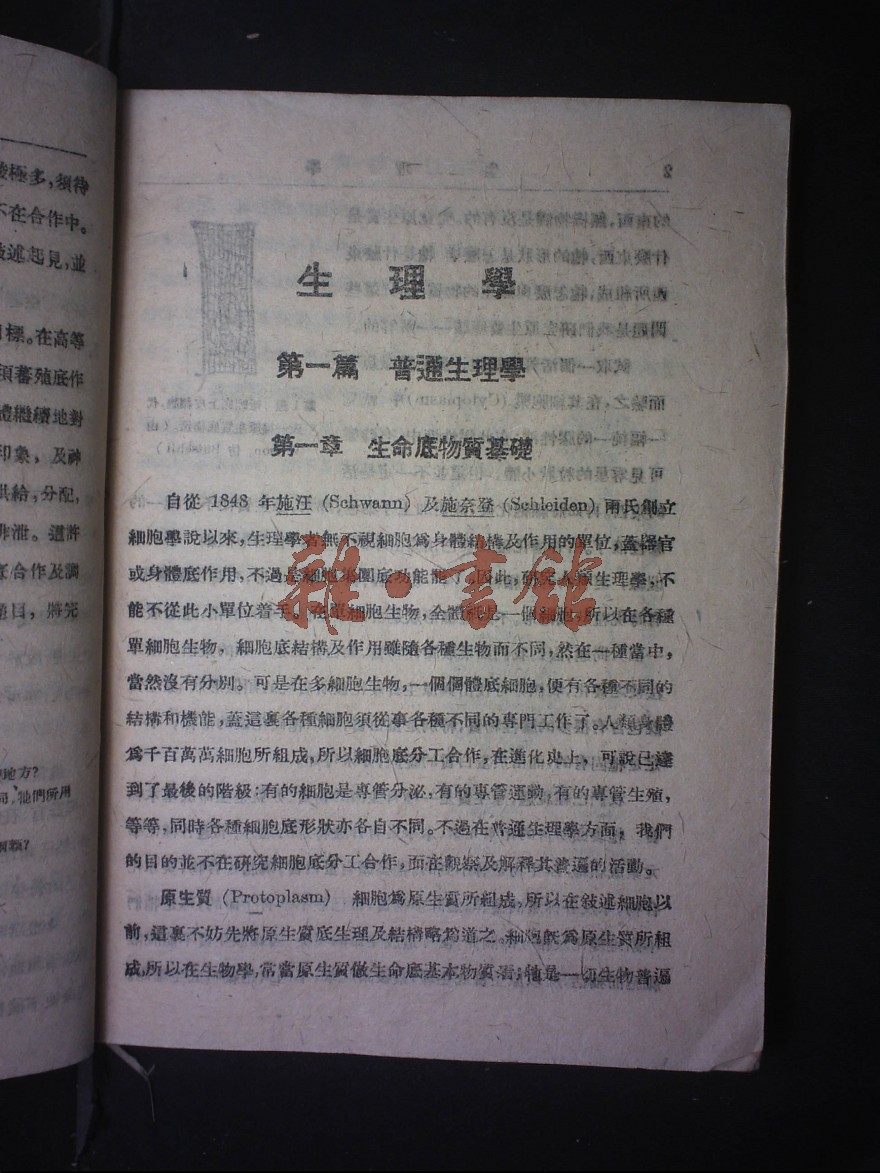 酸極多,須待
不在合作中。
敍述起見,並
目標。在高等
須蕃殖底作
體繼續地對
印象、及神
供給,分配,
排泄。這許
合作及調
題目,將完
地方?
牠們所用
生理學
第一篇 普通生理學
第一章 生命底物質基礎
自從 1848 年施汪 (Schwann) 及施奈登 (Schleiden) 兩氏創立
細胞學說以來,生理學者無不視細胞爲身體結構及作用的單位,蓋器官
或身體底作用、不過是細胞集團底功能罷了。因此,研究人類生理學,不
能不從此小單位着手。在單細胞生物,全體祇是一個細胞,所以在各種
單細胞生物、細胞底結構及作用雖隨各種生物而不同,然在一種當中,
當然沒有分別。可是在多細胞生物,一個個體底細胞,便有各種不同的
結構和機能,蓋這裏各種細胞須從事各種不同的專門工作了。人類身體
爲千百萬萬細胞所組成,所以細胞底分工合作,在進化史上、可說已達
到了最後的階級:有的細胞是專管分泌,有的專管運動,有的專管生殖,
等等,同時各種細胞底形狀亦各自不同。不過在普通生理學方面,我們
的目的並不在研究細胞底分工合作,而在觀察及解釋其普遍的活動。
原生質 (Protoplasm) 細胞爲原生質所組成,所以在敍述細胞以
前,這裏不妨先將原生質底生理及結構略爲道之。細胞旣爲原生質所組
成,所以在生物學,常當原生質做生命底基本物質看;牠是一切生物普遍
雜·書館